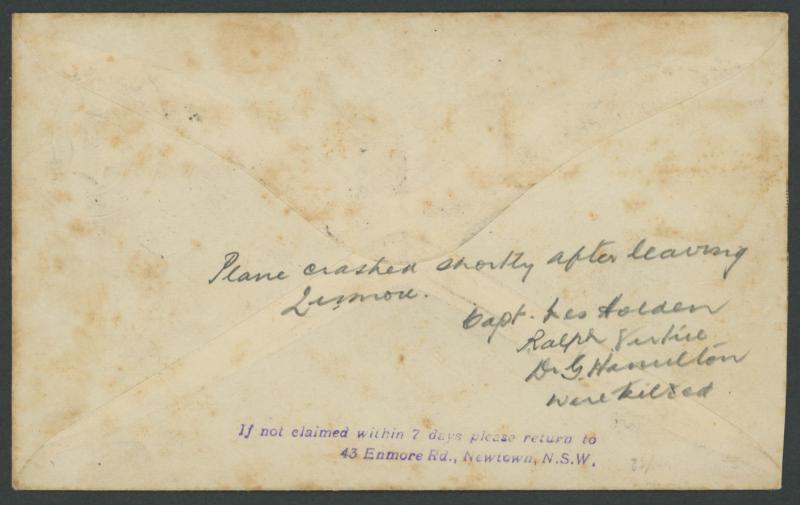 Plane crashed shortly after leaving
Lismore.
Capt. Les Holden
Ralph Virtue
Dr G. Hamilton
were killed
If not claimed within 7 days please return to
43 Enmore Rd., Newtown, N.S.W.